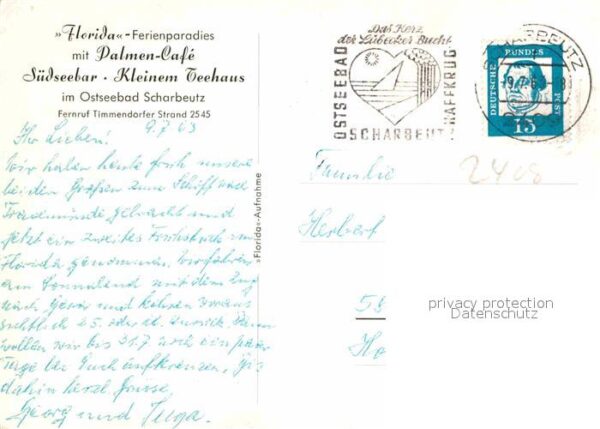 »Florida«-Ferienparadies
mit Palmen-Café
Südseebar · Kleinem Teehaus
im Ostseebad Scharbeutz
Fernruf Timmendorfer Strand 2545
9.7.63
Ihr Lieben!
Wir haben heute früh unsere
beiden Großen zum Schiff nach
Travemünde gebracht und
jetzt ein zweites Frühstück im
Florida genommen. Wir fahren
am Sonnabend mit dem Zug
nach und kehren voraus
sichtlich 25. oder zurück. Dann
wollen wir bis 31.7 noch ein paar
Tage bei Euch aufkreuzen. Bis
dahin herzl. Grüsse,
Georg und Inga.
»Florida«-Aufnahme
Das Herz
der Lübecker Bucht
OSTSEEBAD
SCHARBEUTZ
HAFFKRUG
SCHARBEUTZ
DEUTSCHE
BUNDES
POST
15
2408
Familie
Herbert
privacy protection
Datenschutz
Ho